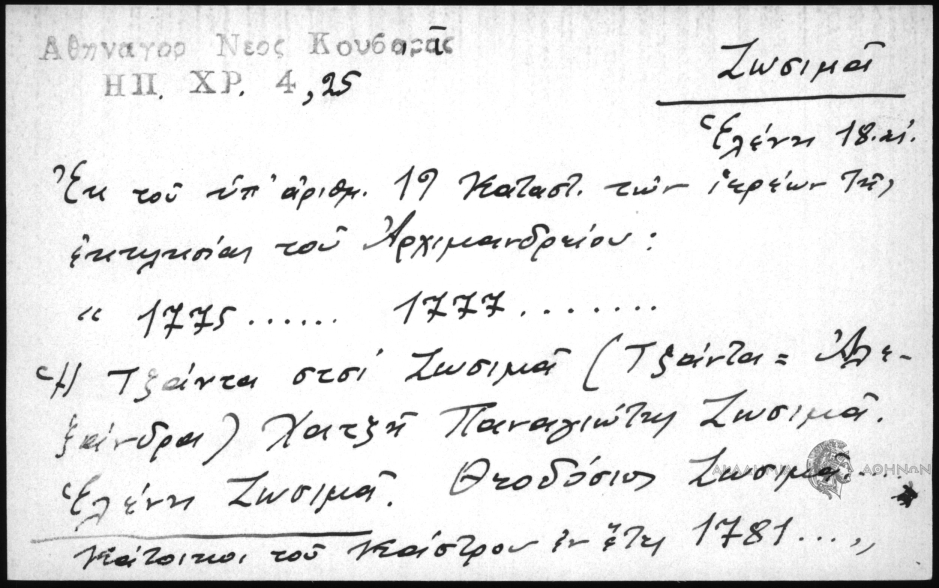 Αθηναγορ Νεος Κουβαρᾶς
ΗΠ. ΧΡ. 4, 25
Ζωσιμᾶ
Ἑλένη 18.αἰ.
Ἐκ τοῦ ὑπ' ἀριθμ. 19 Καταστ. τῶν ἱερέων τῆς
ἐκκλησίας τοῦ Ἀρχιμανδρείου :
" 1775 ...... 1777 ........
Ἡ Τζάντα στσί Ζωσιμᾶ (Τζάντα = Ἀλε-
ξάνδρα) Χατζῆ Παναγιώτης Ζωσιμᾶ.
Ἑλένη Ζωσιμᾶ. Θεοδόσιος Ζωσιμᾶ....
ΑΚΑΔΗΜΙΑ ΑΘΗΝΩΝ
Κάτοικοι τοῦ Κάστρου ἐν ἔτει 1781...,,